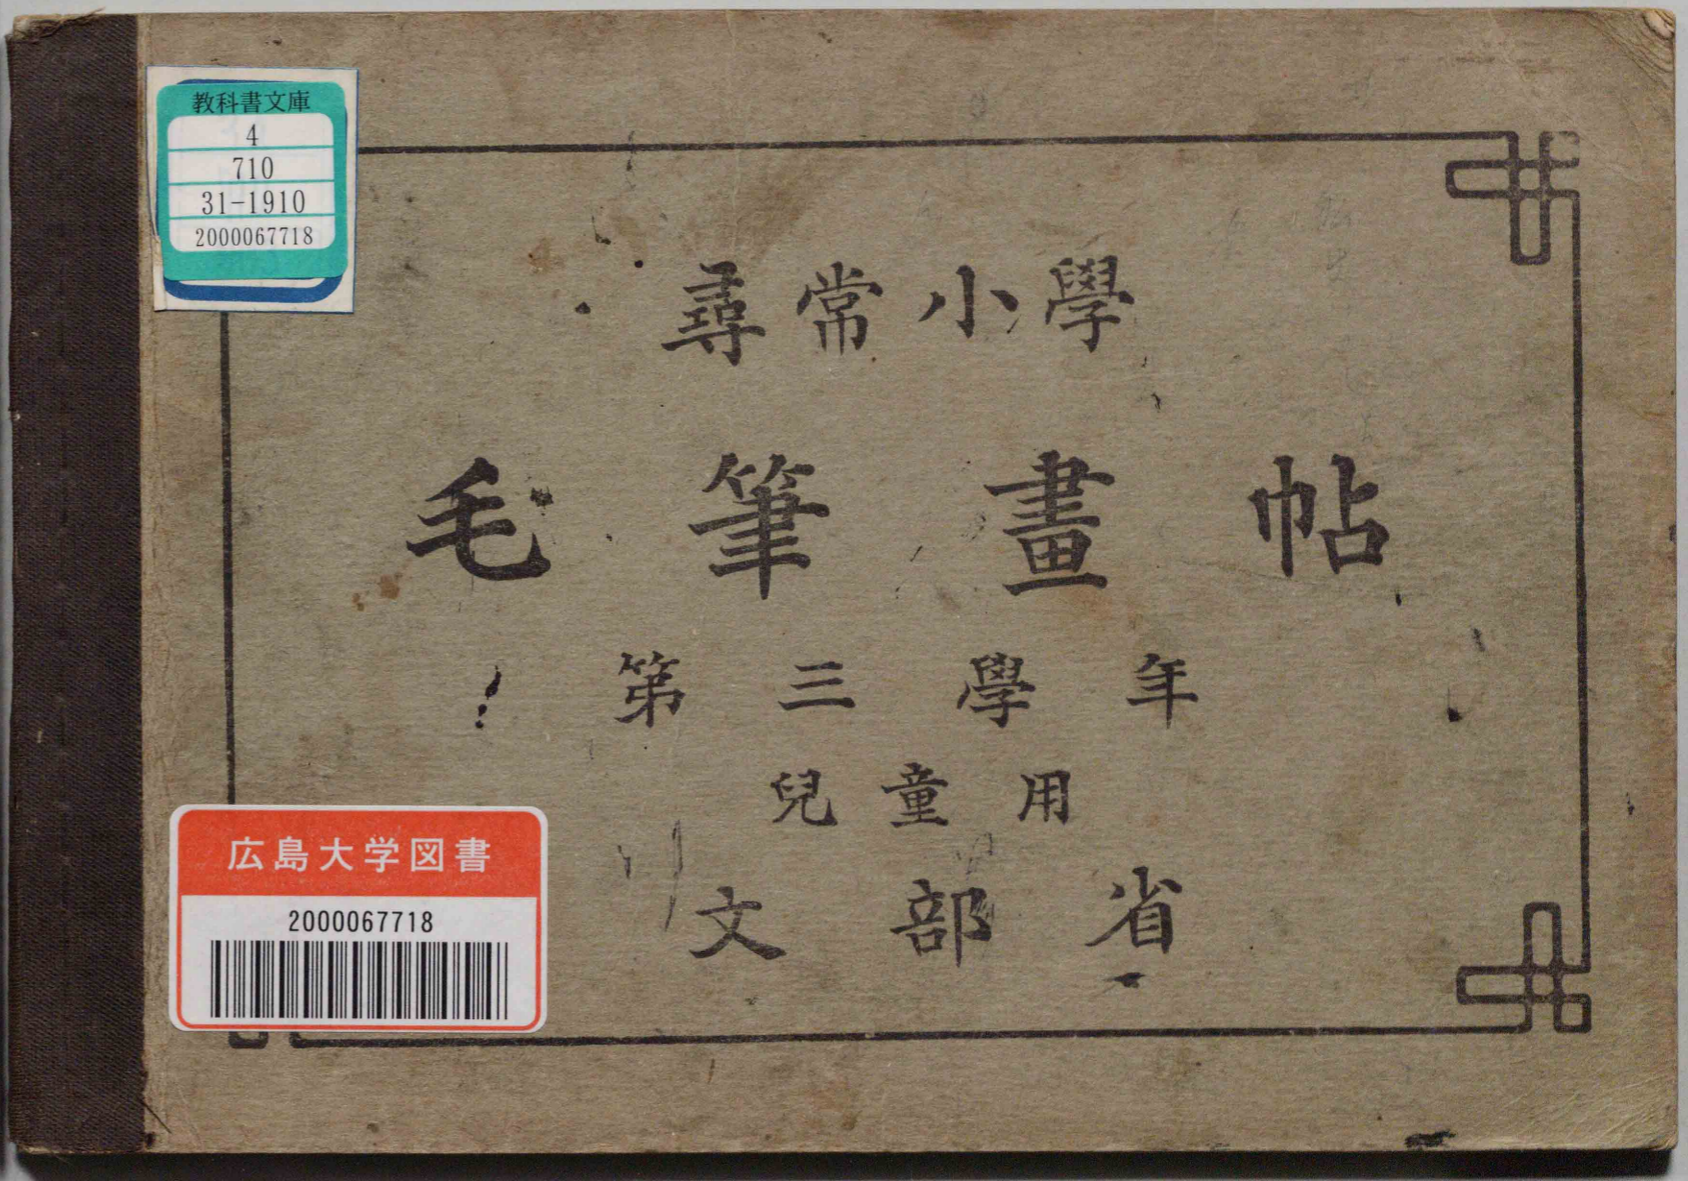 教科書文庫
4
710
31-1910
2000067718
尋常小學
毛筆畫帖
第三學年
兒童用
文部省
広島大学図書
2000067718